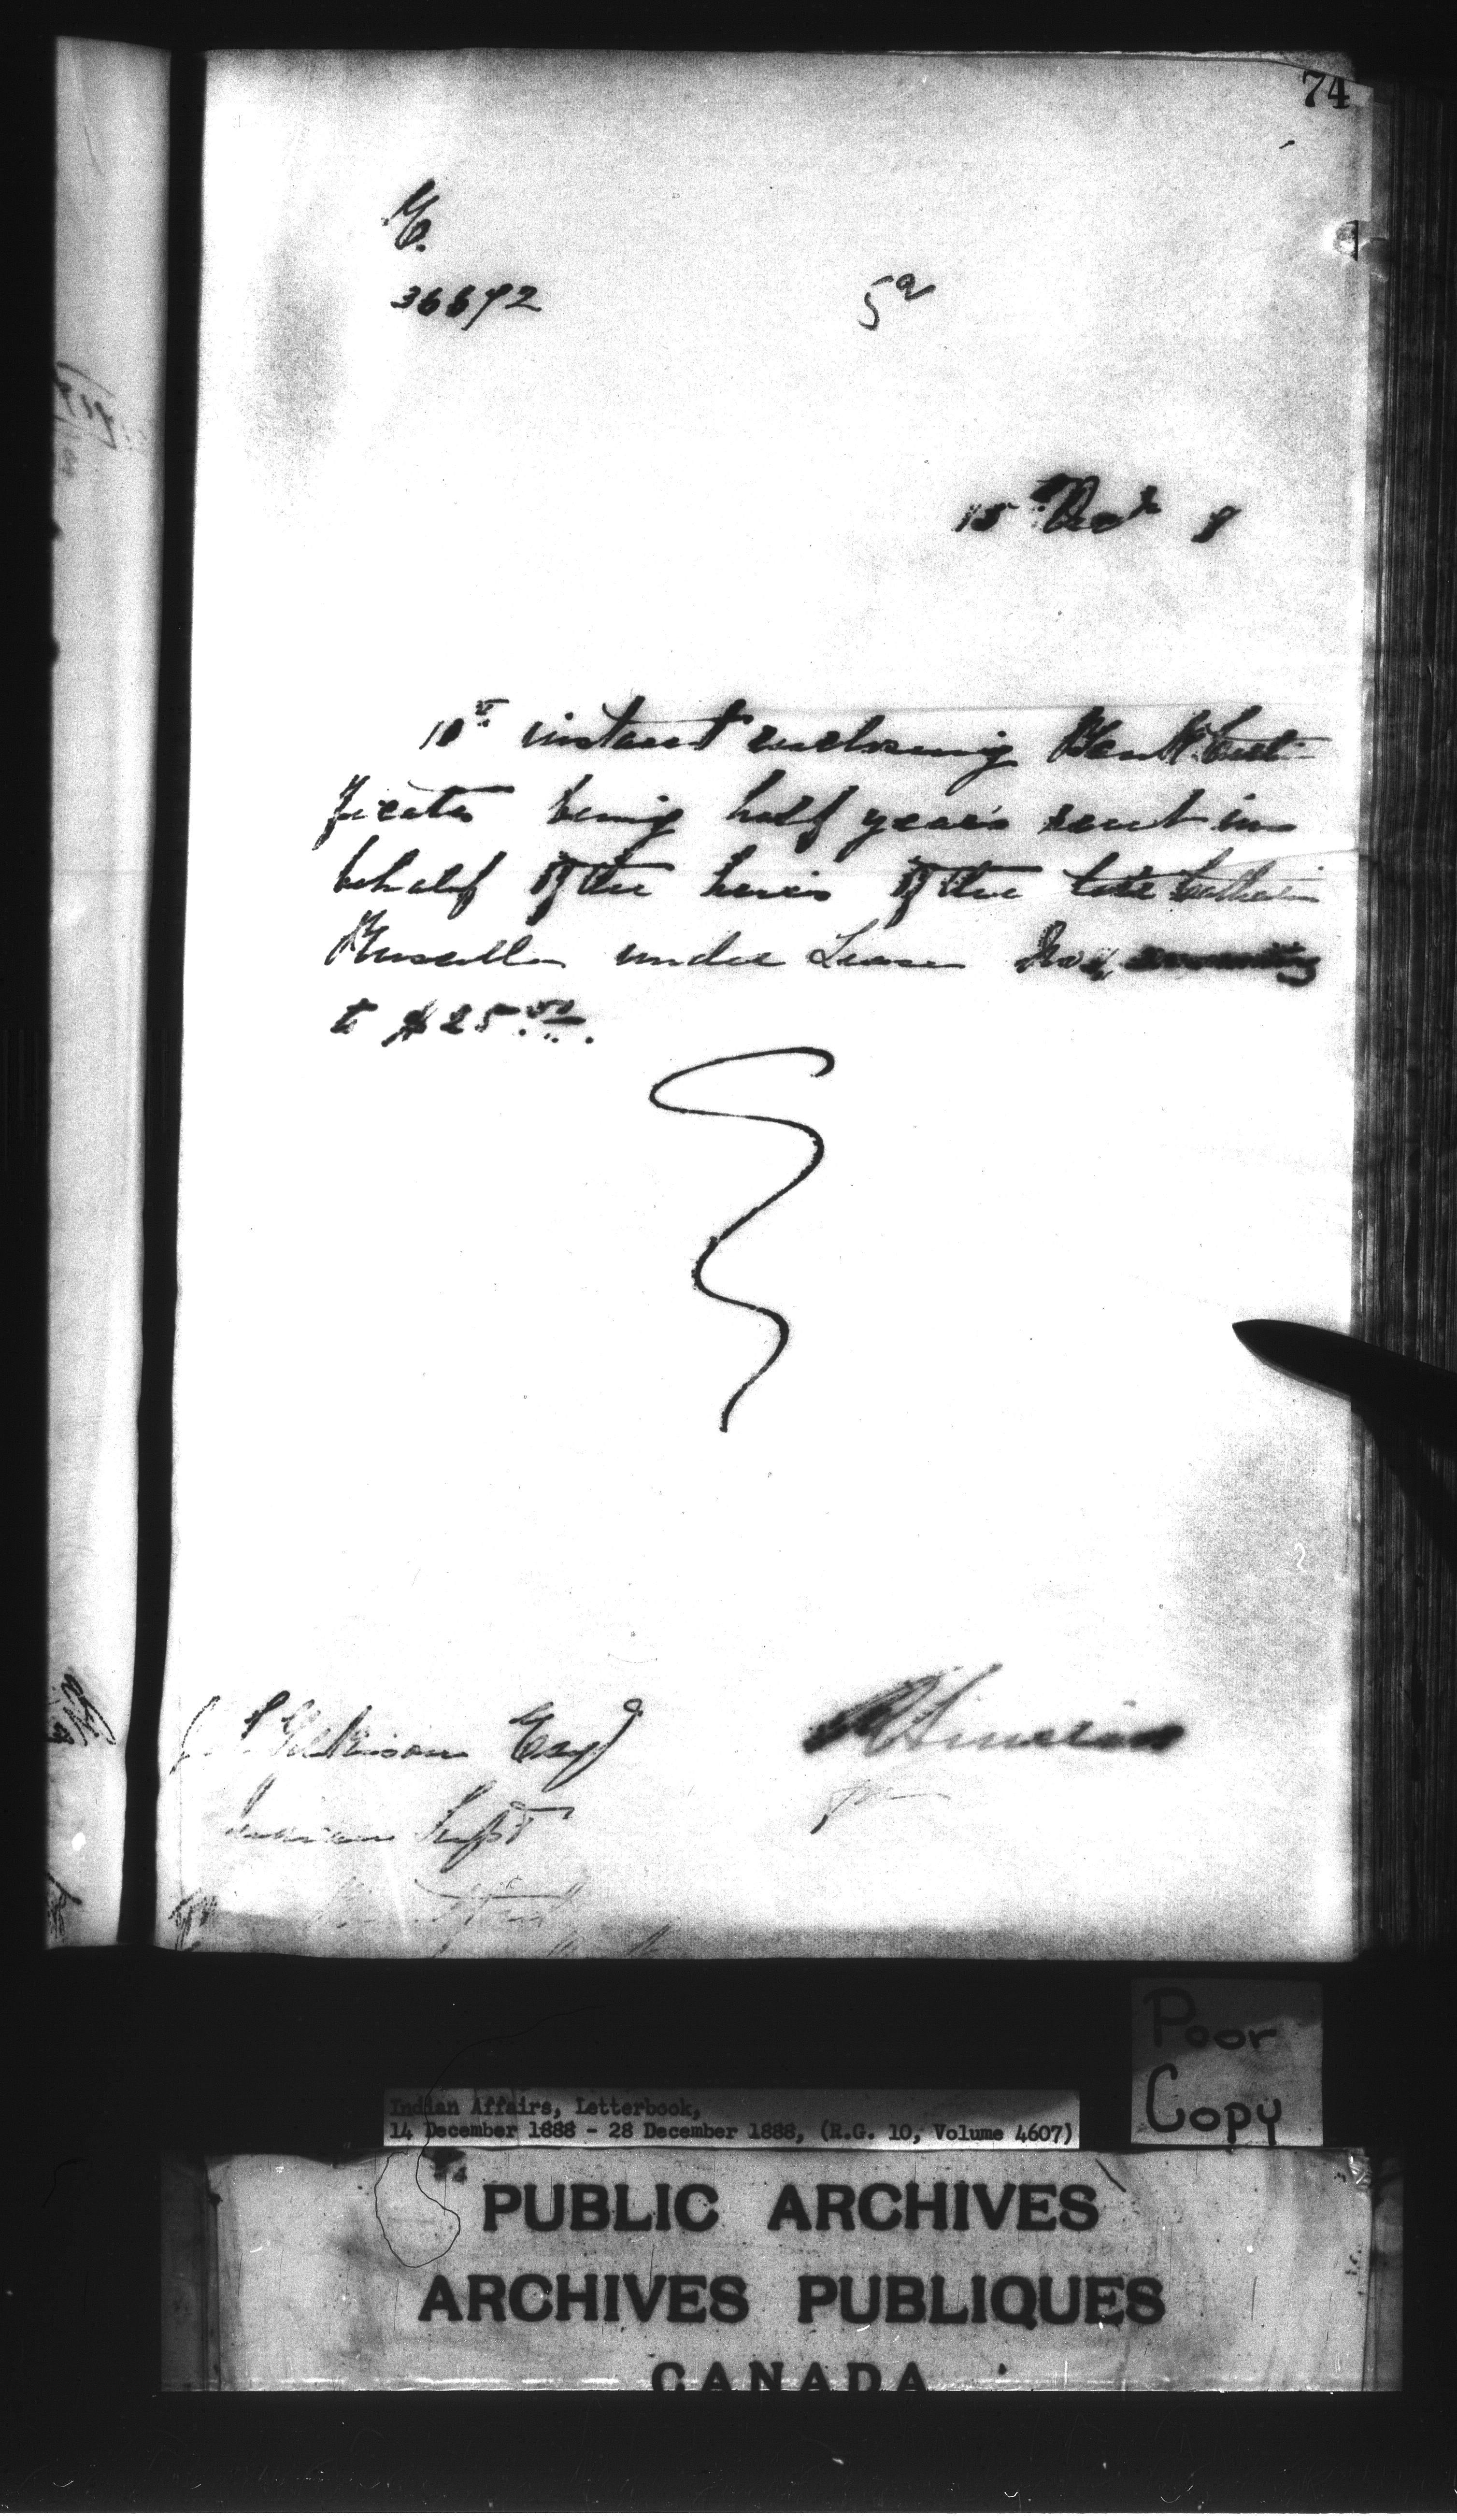 74
36672
5a
15th Dec 8
10th instant enclosing Bank Certi-
ficate being half year's rent in
behalf of the heirs of the late Catherine
Russell under Lease No. amounting
to $25.00.
J. T. Gilkison Esq
Indian Supt
R Sinclair
Brantford
Poor
Copy
Indian Affairs, Letterbook,
14 December 1888 - 28 December 1888, (R.G. 10, Volume 4607)
PUBLIC ARCHIVES
ARCHIVES PUBLIQUES
CANADA